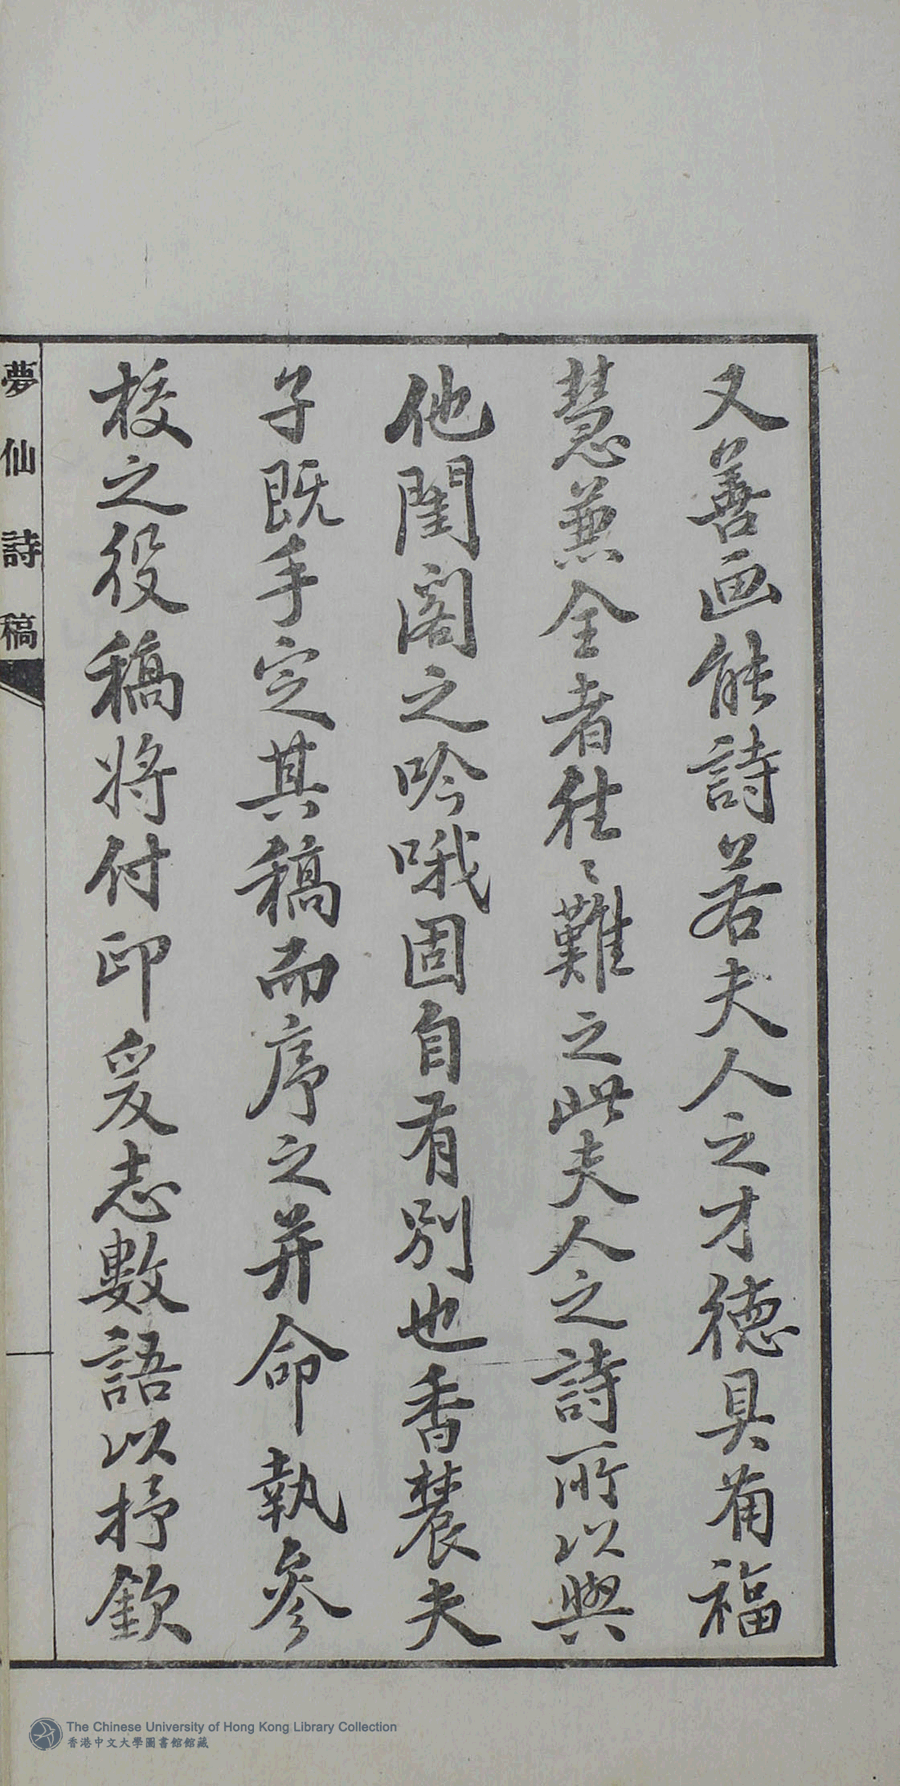 又善画能詩若夫人之才德具備福
慧兼全者往〻難之此夫人之詩所以與
他閨閣之吟哦固自有別也香農夫
子既手定其稿而序之并命執參
校之役稿將付印爰志數語以抒欽
夢仙詩稿
The Chinese University of Hong Kong Library Collection
香港中文大學圖書館館藏